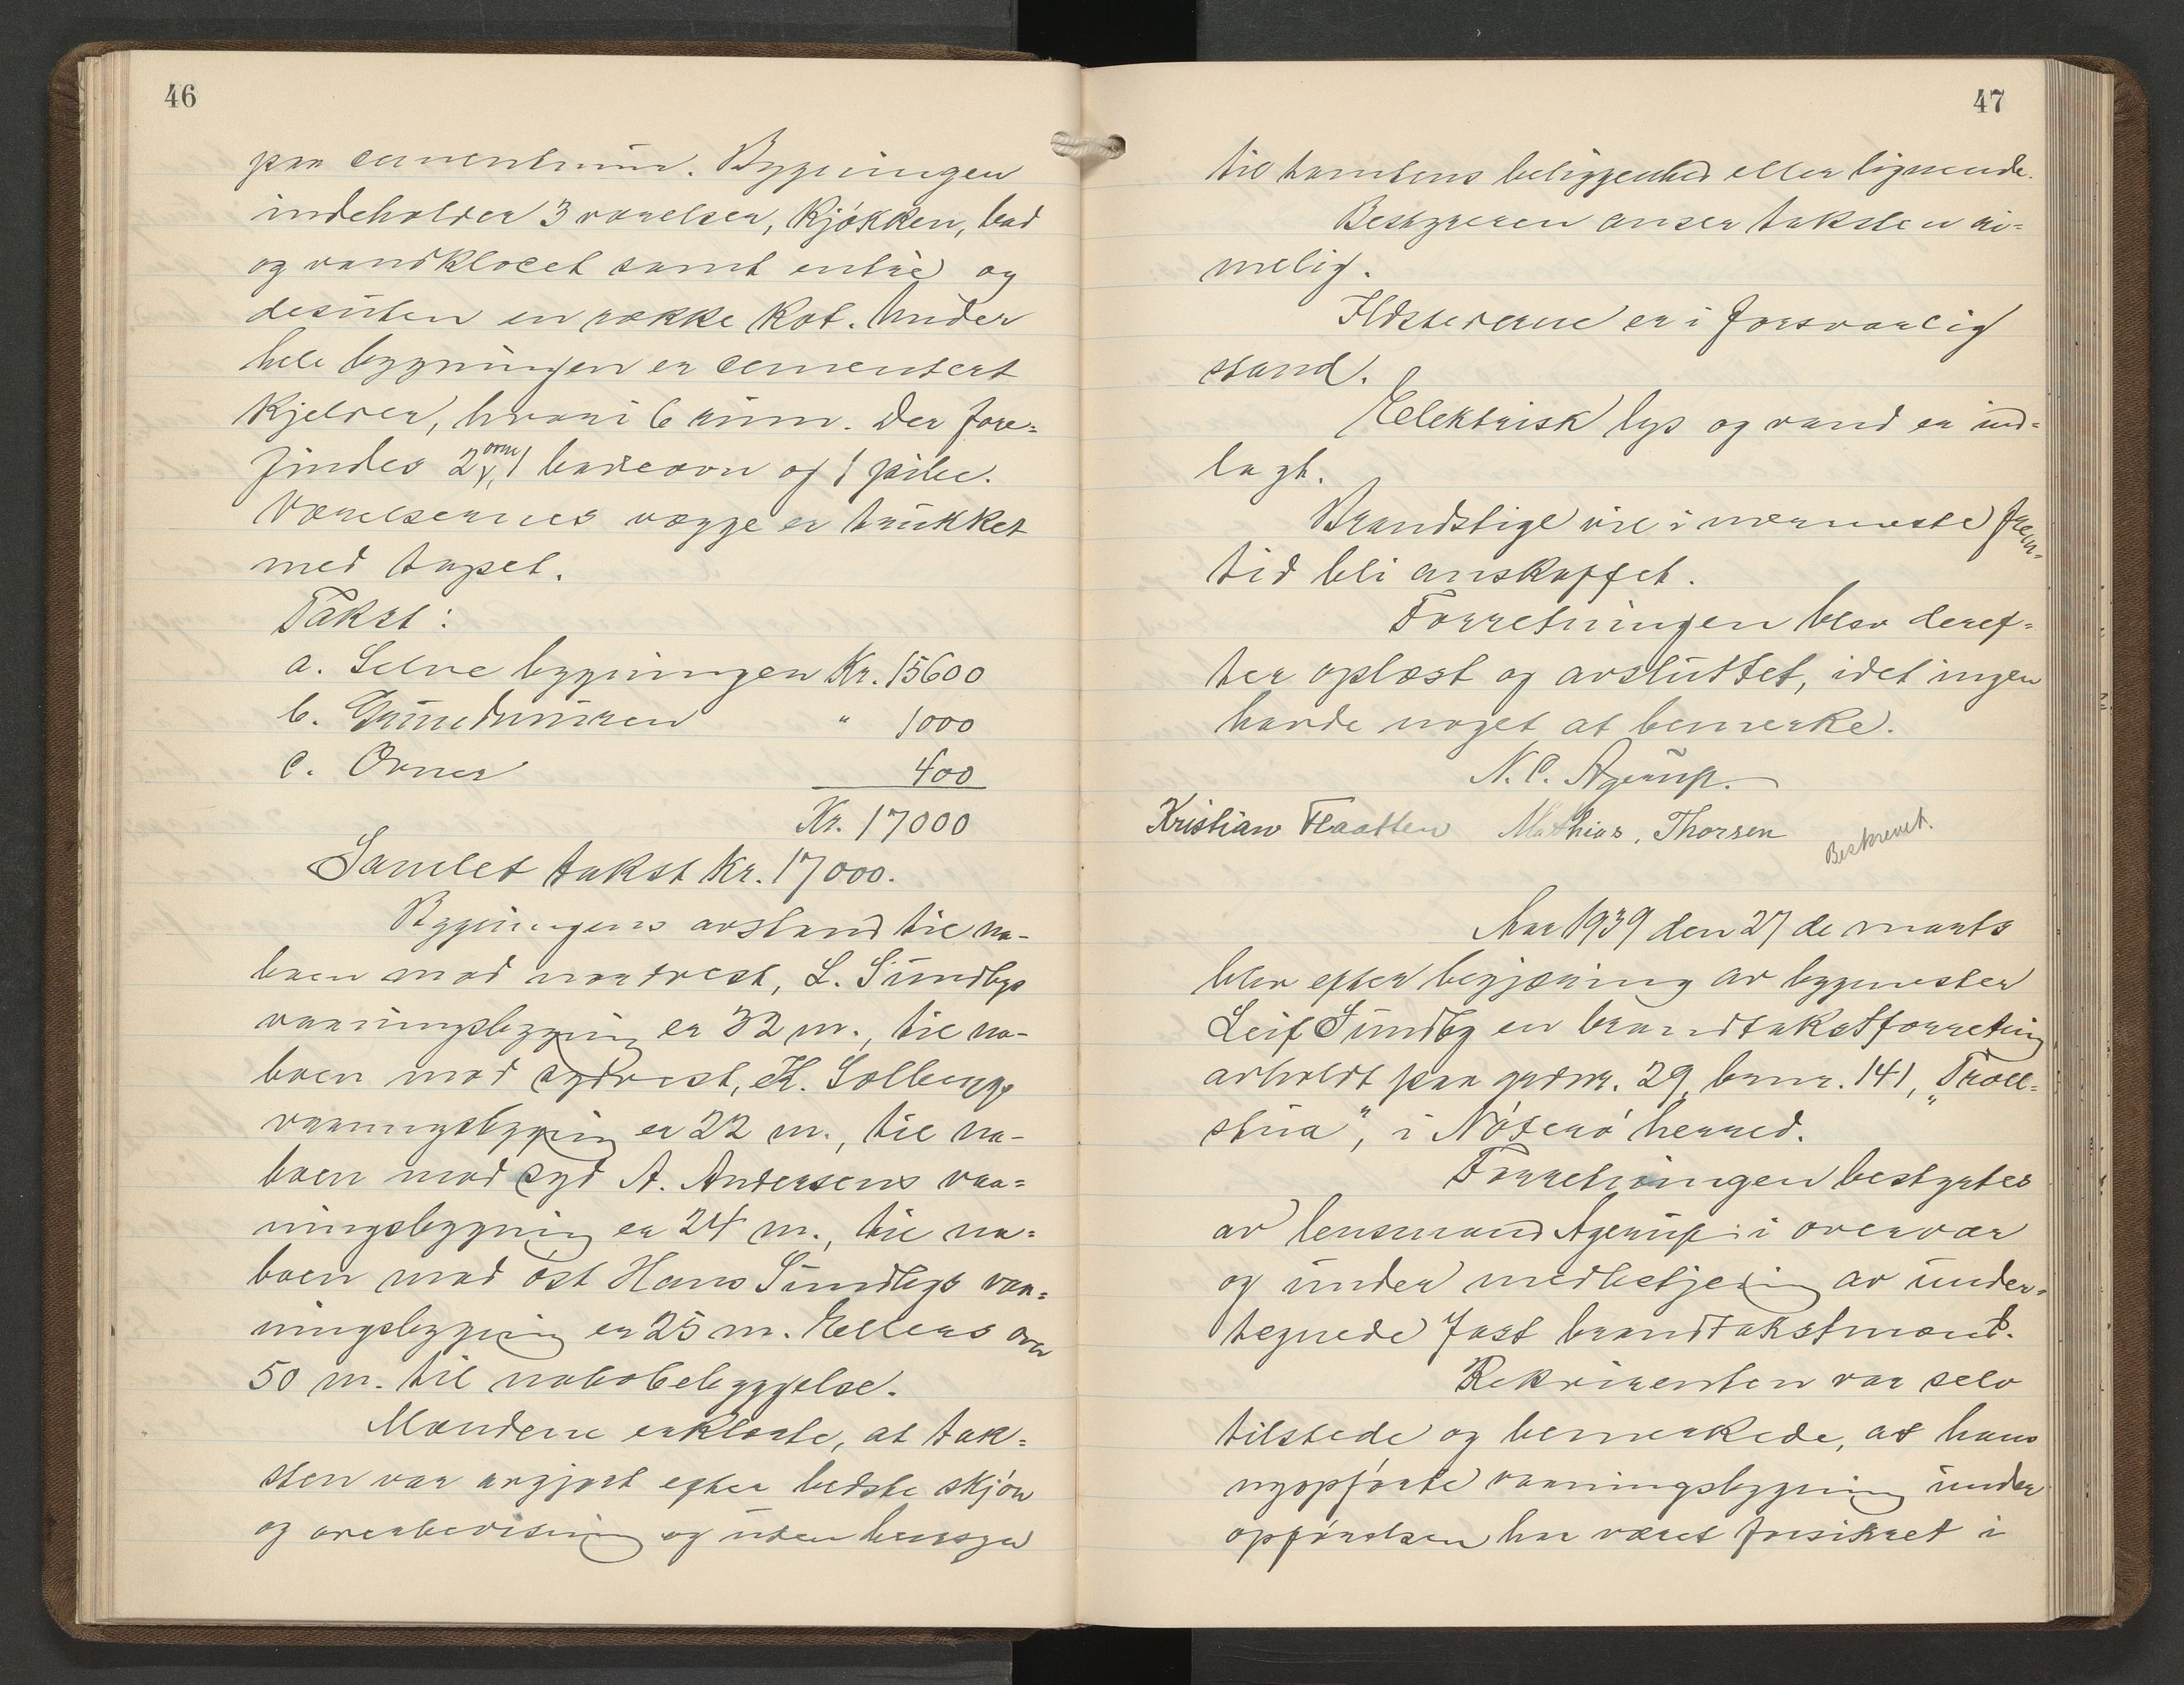 46
paa cementmur. Bygningen
indeholder 3 værelser, kjøkken, bad
og vandklocet samt entré og
desuten en række kot. Under
hele bygningen er cementert
kjelder, hvori 6 rum. Der fore=
findes 2 ovne, 1 badeovn og 1 pibe.
Værelsernes vægge er trukket
med tapet.
Takst:
a. Selve bygningen Kr. 15600
b. Grundmuren " 1000
c. Ovner 400
Kr. 17000
Samlet takst kr. 17000.
Bygningens avstand til na-
boen mod nordvest, L. Sundbys
vaaningsbygning er 32 m., til na-
boen mod sydvest, K. Solbergs
vaaningsbygning er 22 m., til na-
boen mod syd A. Andersens vaa=
ningsbygning er 24 m., til na=
boen mod øst Hans Sundbys vaa=
ningsbygning er 25 m. Ellers over
50 m. til nabobebyggelse.
Mændene erklærte, at tak=
sten var avgjort efter bedste skjøn
og overbevisning og uten hensyn
47
til tomtens beliggenhed eller lignende.
Bestyreren anser taksten ri=
melig.
Ildstederne er i forsvarlig
stand.
Elektrisk lys og vand er ind=
lagt.
Brandstige vil i nærmeste frem=
tid bli anskaffet.
Forretningen blev deref=
ter oplæst og avsluttet, idet ingen
havde noget at bemerke.
N. C. Agerup.
Kristian Flaatten Mathias. Thorsen
Beskrevet.
Aar 1939 den 27 de marts
blev efter begjæring av bygmester
Leif Sundby en brandtakstforretning
avholdt paa gardnr. 29, brnr. 141, „Troll=
stua", i Nøterø herred.
Forretningen bestyrtes
av lensmand Agerup i overvær
og under medbetjening av under=
tegnede fast brandtakstmænd.
Rekvirenten var selv
tilstede og bemerkede, at hans
nyopførte vaaningsbygning under
opførelsen har været forsikret i